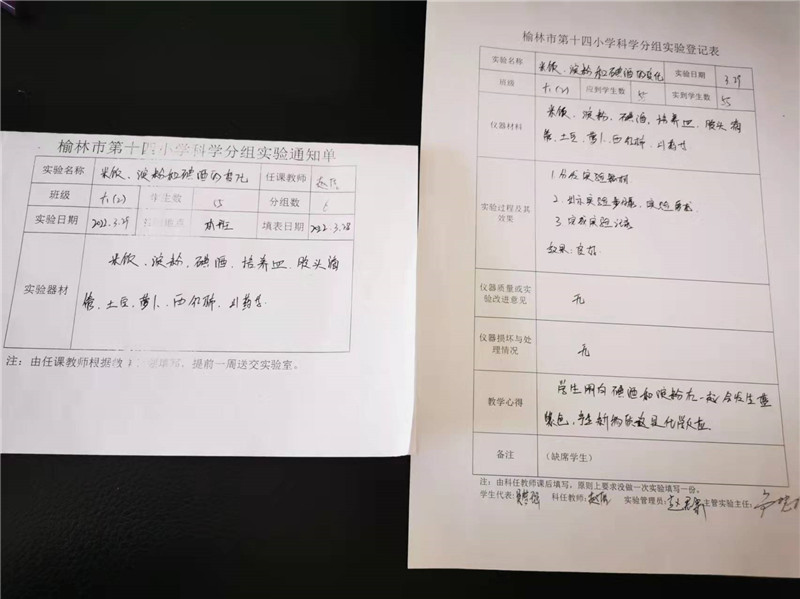 榆林市第十四小学科学分组实验通知单
实验名称 米饭、淀粉和碘酒的变化 任课教师
班级 六(2) 学生数 55 分组数 6
实验日期 2022.3.29 填表日期 2022.3.28
实验器材 米饭、淀粉、碘酒、培养皿、胶头滴
管、土豆、萝卜、西红柿、
注：由任课教师根据 填写，提前一周送交实验室。
榆林市第十四小学科学分组实验登记表
实验名称 米饭、淀粉和碘酒的变化 实验日期 3.29
班级 六(2) 应到学生数 55 实到学生数 55
仪器材料 米饭、淀粉、碘酒、培养皿、胶头滴
管、土豆、萝卜、西红柿、
实验过程及其
效果
1.分发实验器材
2.出示实验步骤、实验要求
3.完成实验记录
效果:良好
仪器质量或实
验改进意见 无
仪器损坏与处
理情况 无
教学心得 学生明白碘酒和淀粉在一起会发生变
色,产生新物质
备注 (缺席学生)
注：由科任教师课后填写，原则上要求没做一次实验填写一份。
学生代表: 科任教师: 实验管理员: 主管实验主任: